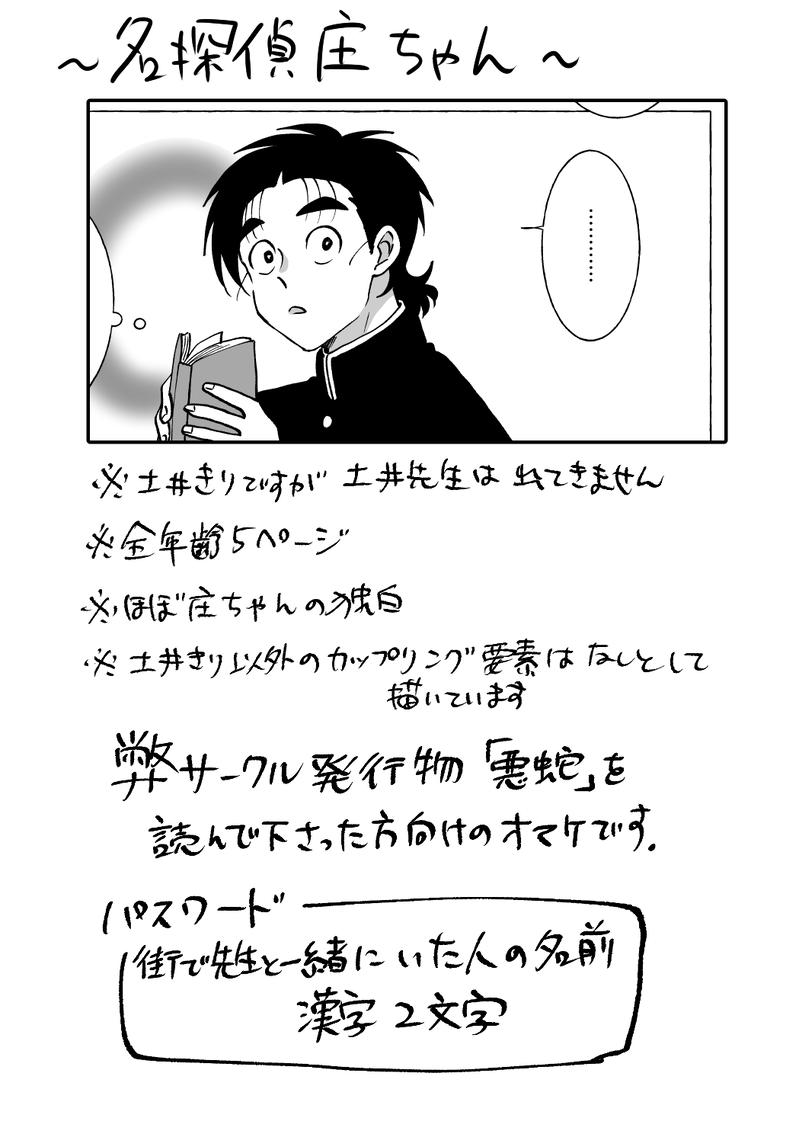 ～名探偵庄ちゃん～
…………
※土井きりですが 土井先生は 出てきません
※全年齢5ページ
※ほぼ庄ちゃんの独白
※土井きり以外のカップリング要素は なしとして
描いています
弊サークル発行物「悪蛇」を
読んで下さった方向けのオマケです.
パスワード
街で先生と一緒に いた人の名前
漢字 2文字